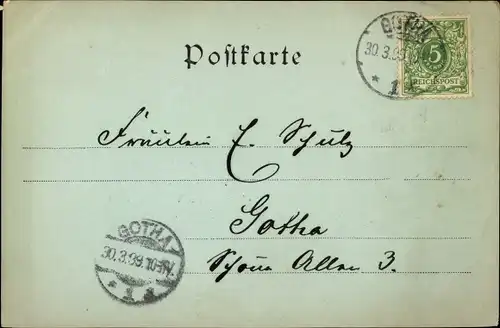 GOTHA
30.3.99.
* 1 *
5
REICHSPOST
Postkarte
Fräulein E. Schulz
Gotha
Schöne Allee 3.
GOTHA
30.3.99.
* 1 *